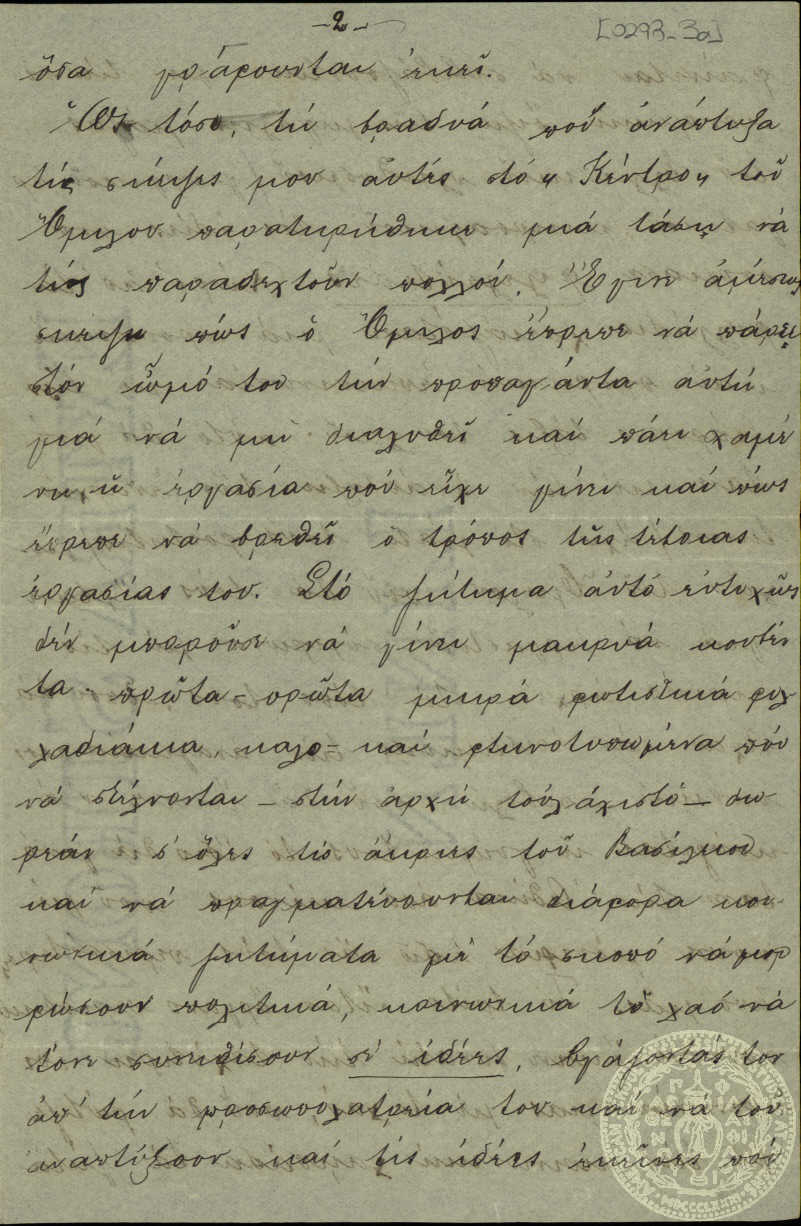 -2-
[0293-3a]
ὅσα γράφουνται ἐκεῖ.
Ὡς τόσο, τὴ βραδυά ποῦ ἀνάπτυξα
τίς σκέψες μου αὐτές στό „Κέντρο„ τοῦ
Ὁμίλου παρατηρήθηκε μιά τάση νά
τίς παραδεχτοῦν πολλοί. Ἔγινε ἀμέσως
σκέψη πώς ὁ Ὅμιλος ἔπρεπε νά πάρει
στόν ὦμό του τήν προπαγάντα αὐτή
γιά νά μή διαλυθεῖ καί πάει χαμέ
νη ἡ ἐργασία πού εἶχε γίνει καί πώς
ἔπρεπε νά βρεθεῖ ὁ τρόπος τῆς τέτοιας
ἐργασίας του. Στό ζήτημα αὐτό εὐτυχῶς
δέν μποροῦσε νά γίνει μακρυά κουβέν
τα. πρῶτα-πρῶτα μικρά φωτιστικά φυλ
λαδιάκια, καλο= καί φτηνοτυπωμένα πού
νά στέλνονται - στήν ἀρχή τοὐλάχιστο - δω
ρεάν σ' ὅλες τίς ἄκριες τοῦ Βασίλειου
καί νά πραγματεύουνται διάφορα κοι
νωνικά ζητήματα μέ τό σκοπό νά μορ
φώσουν πολιτικά, κοινωνικά τό λαό νά
τόνε συνηθίσουν σέ ἰδέες, βγάζοντάς τον
ἀπ' τήν προσωπολατρεία του καί νά τοῦ
ἀναπτύξουν καί τίς ἰδέες ἐκεῖνες πού